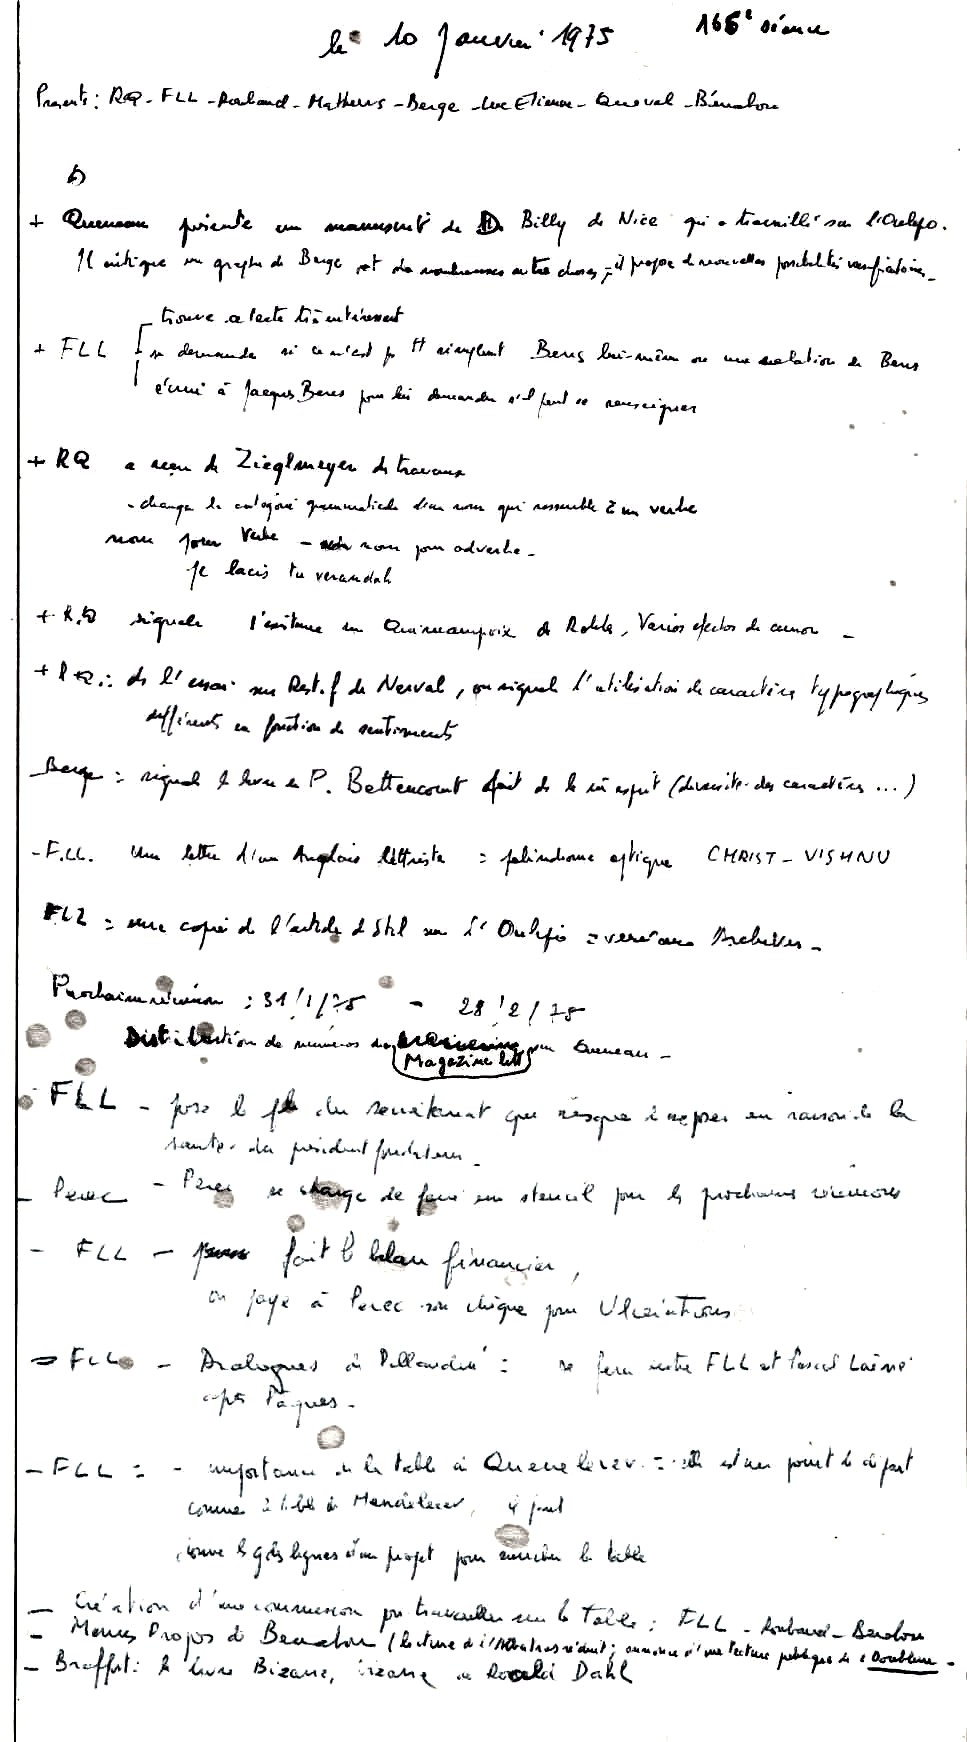 le 10 Janvier 1975 166e séance
Présents : RQ - FLL - Roubaud - Mathews - Berge - Luc Etienne - Queval - Bénabou
+ Queneau présente un manuscrit de D. Billy de Nice qui a travaillé sur l'Oulipo.
Il critique un graphe de Berge et de nombreuses autre choses, il propose de nouvelles possibilités versificatoires -
trouve ce texte très intéressant
+ FLL se demande si ce n'est pas tt simplement Bens lui-même ou une relation de Bens
écrire à Jacques Bens pour lui demander s'il peut se renseigner
+ RQ a reçu de Zieglmeyer des travaux
- change la catégorie grammaticale d'un nom qui ressemble à un verbe
nom pour verbe - nom pour adverbe -
je lacis tu verandah
+ R.Q signale l'existence en Quincampoix de Robles, Varios efectos de amor -
+ RQ : ds l'essai sur Rest. de Nerval, on signale l'utilisation de caractères typographiques
différents en fonction de sentiments
Berge = signale le livre de P. Bettencourt fait ds le m esprit (diversité des caractères ...)
- F.LL. Une lettre d'un Anglais lettriste = palindrome optique CHRIST - VISHNU
FLL = une copie de l'article d Stil sur l'Oulipo = versé aux Archives -
Prochaine réunion : 31/1/75 - 28/2/75
Distribution de numéros du par Queneau -
Magazine litt
FLL - pose le pb du secrétariat qui risque à se poser en raison de la
santé du président fondateur -
- Perec - Perec se charge de faire un stencil pour les prochaines réunions
- FLL - fait le bilan financier,
on paye à Perec son chèque pour Ulcérations
- FLL - Dialogues de : se fera entre FLL et Pascal Lainé
après Pâques -
- FLL = - importance de la table de Queneleiev = elle est un point de départ
comme la table de Mendeleiev, il faut
trouver les gdes lignes d'un projet pour enrichir la table
- Création d'une commission pr travailler sur la Table : FLL - Roubaud - Benabou
- Menus Propos de Benabou (lecture de l' réduit ; annonce d'une lecture publique de
- Braffort : le livre Bizarre, bizarre de Roald Dahl